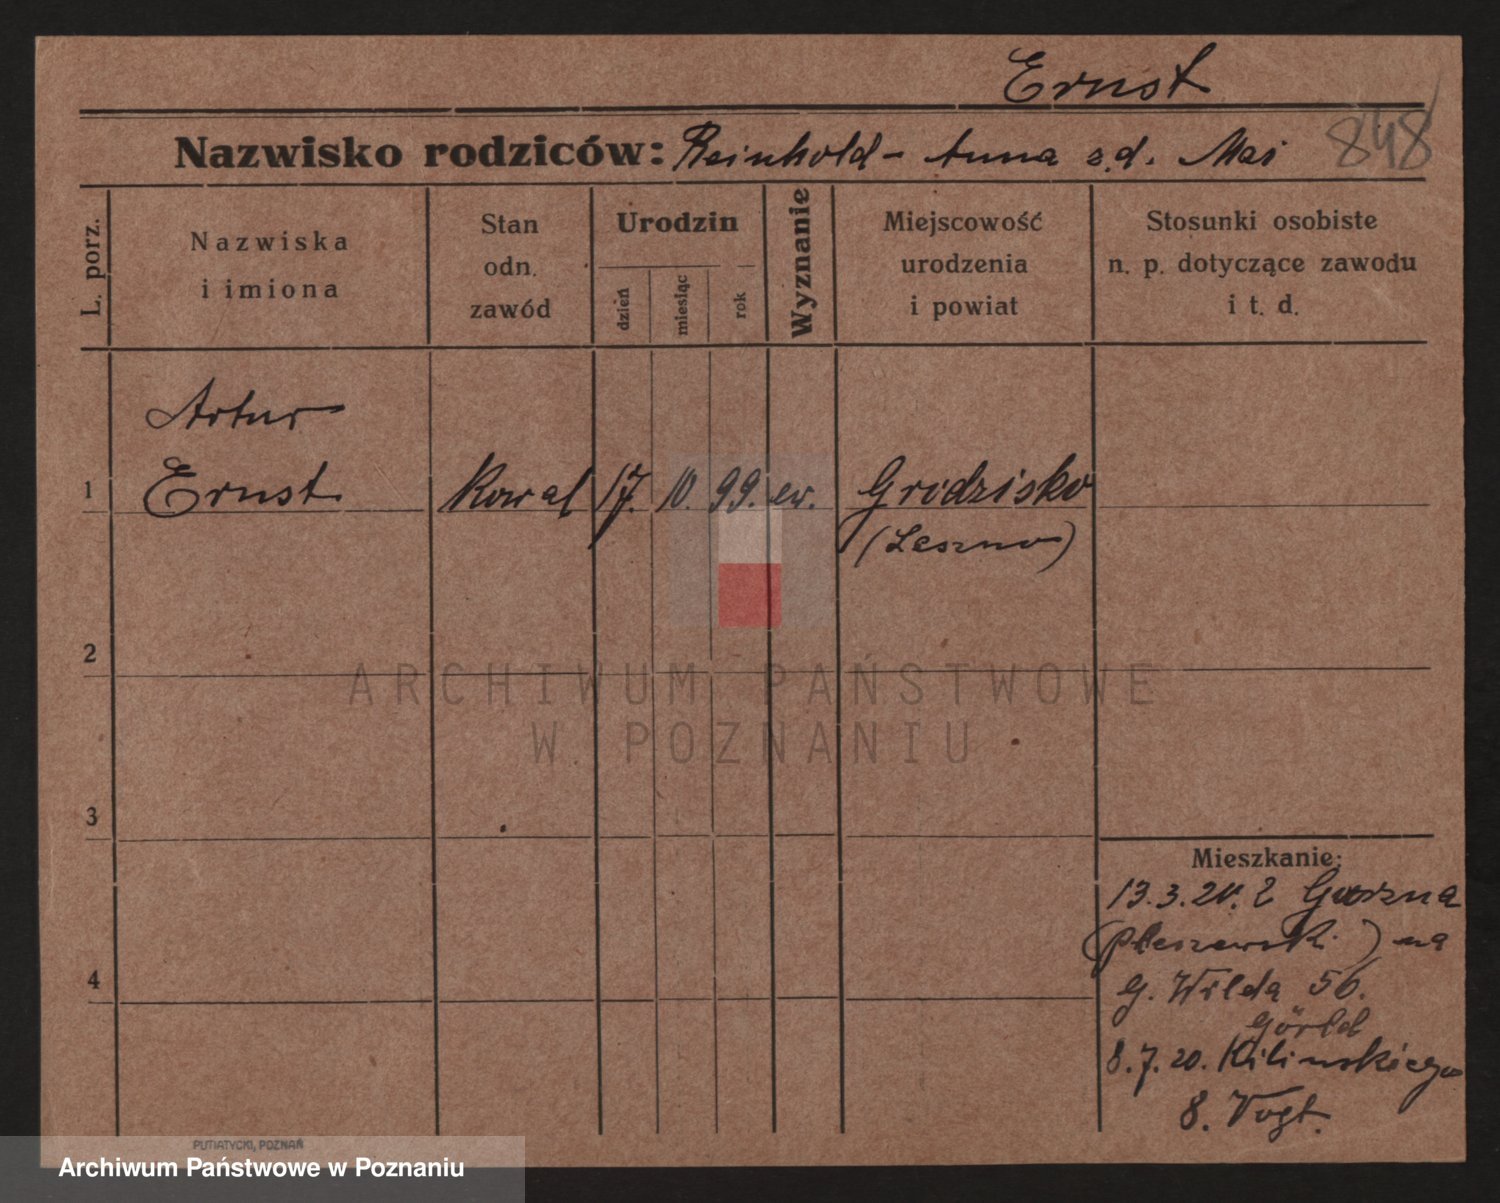 Ernst
Nazwisko rodziców: Reinhold - Anna z.d. Mai
848
L. porz.
Nazwiska
i imiona
Stan
odn.
zawód
Urodzin
dzień
miesiąc
rok
Wyznanie
Miejscowość
urodzenia
i powiat
Stosunki osobiste
n. p. dotyczące zawodu
i t. d.
Artur
1 Ernst Kowal 17. 10. 99. ew. Grodzisko
(Leszno)
2
ARCHIWUM PAŃSTWOWE
W POZNANIU
3
Mieszkanie:
13.3.20. z
(Pleszewski) na
4
G. Wilda 56.
8.7.20. Kilinskiego
8. Vogt.
PUTIATYCKI, POZNAŃ
Archiwum Państwowe w Poznaniu